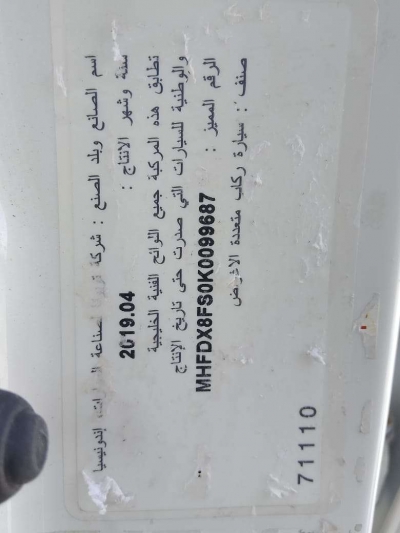 اسم الصانع وبلد الصنع : شركة تويوتا لصناعة السيارات، إندونيسيا
سنة وشهر الانتاج : 2019.04
تطابق هذه المركبة جميع اللوائح الفنية الخليجية
والوطنية للسيارات التي صدرت حتى تاريخ الإنتاج
الرقم المميز : MHFDX8FS0K0099687
صنف : سيارة ركاب متعددة الاغراض
71110